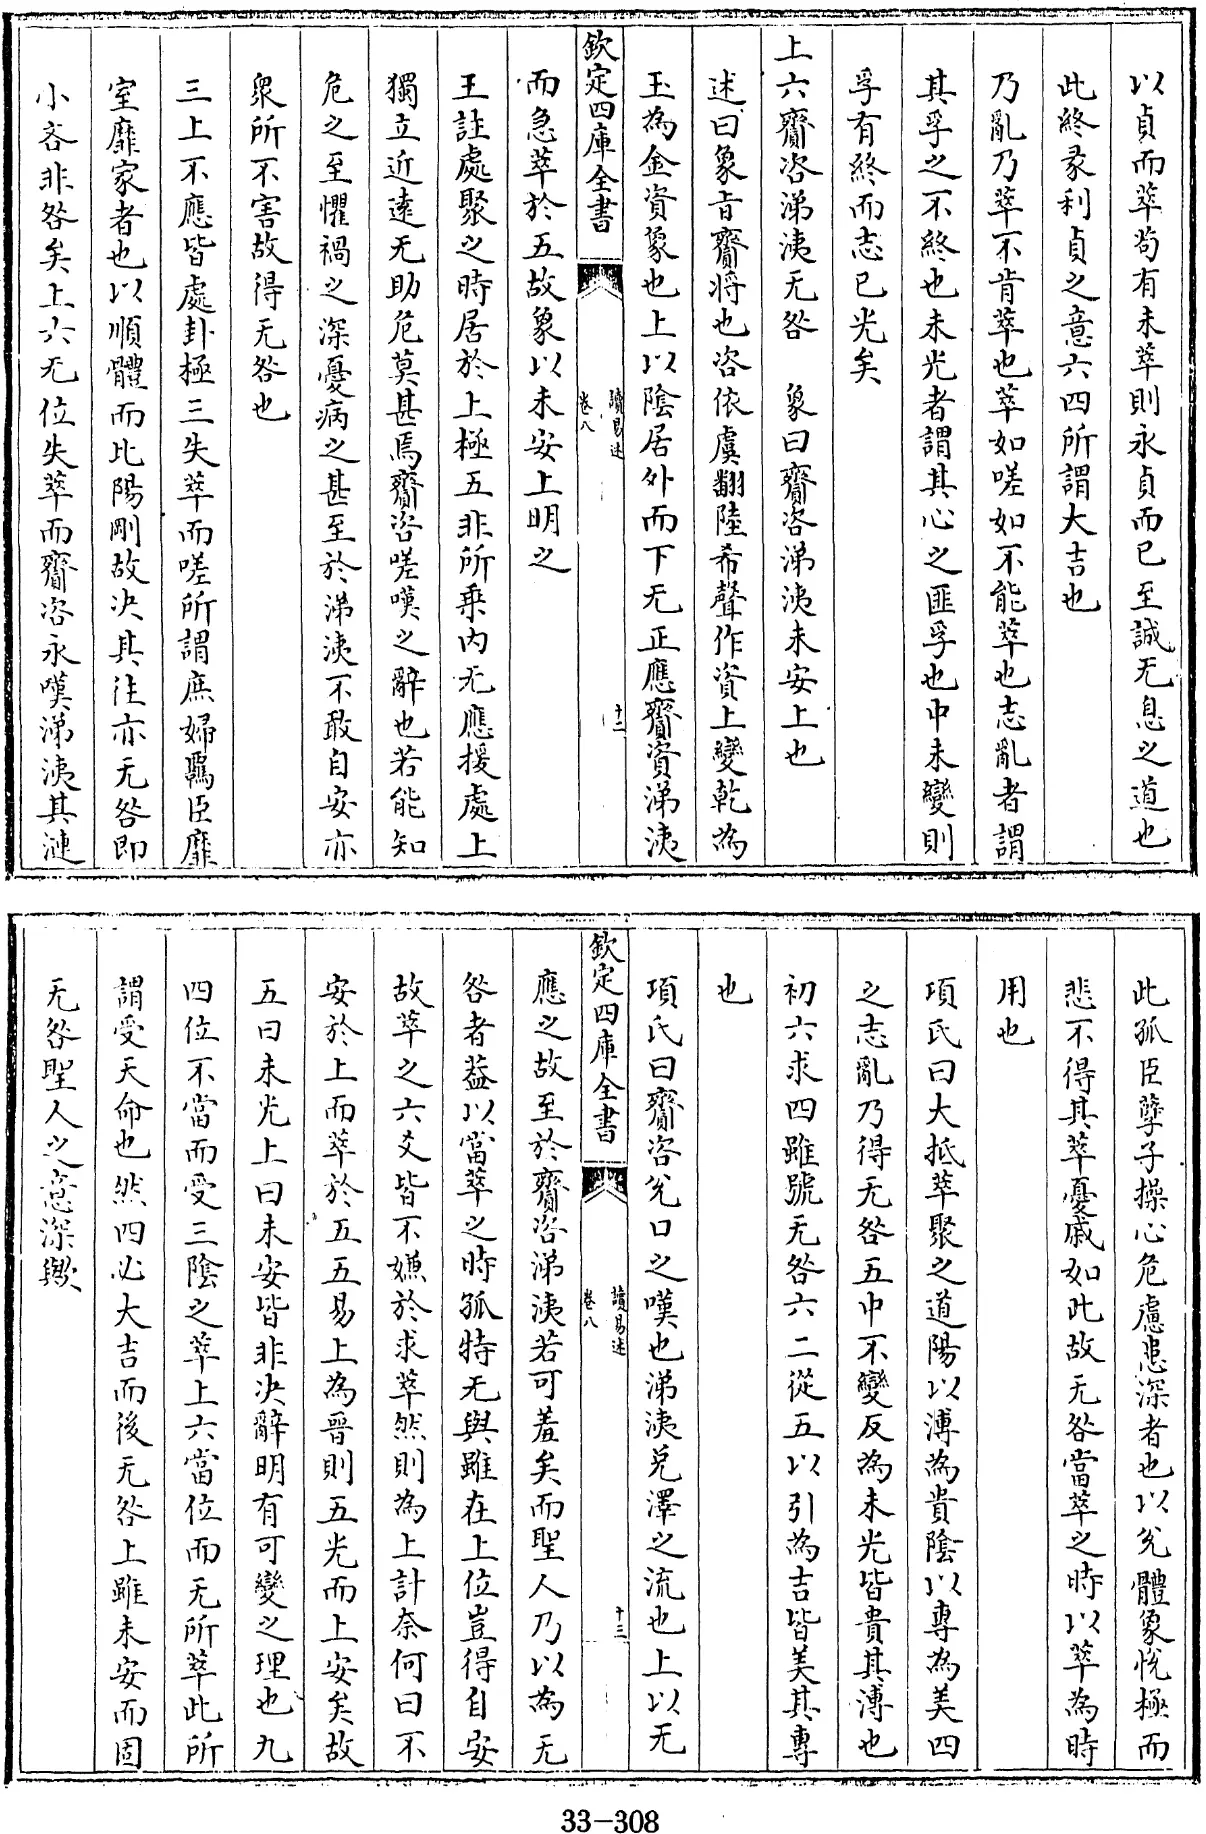 以貞而萃茍有未萃則永貞而已至誠无息之道也
此終彖利貞之意六四所謂大吉也
乃亂乃萃不肯萃也萃如嗟如不能萃也志亂者謂
其孚之不終也未光者謂其心之匪孚也中未變則
孚有終而志已光矣
上六齎咨涕洟无咎　象曰齎咨涕洟未安上也
述曰象旨齎將也咨依虞翻陸希聲作資上變乾為
玉為金資象也上以陰居外而下无正應齎資涕洟
欽定四庫全書
讀易述
卷八
十二
而急萃於五故象以未安上明之
王註處聚之時居於上極五非所乗内无應援處上
獨立近遠无助危莫甚焉齎咨嗟嘆之辭也若能知
危之至懼禍之深憂病之甚至於涕洟不敢自安亦
衆所不害故得无咎也
三上不應皆處卦極三失萃而嗟所謂庶婦羈臣靡
室靡家者也以順體而比陽剛故决其往亦无咎即
小吝非咎矣上六无位失萃而齎咨永嘆涕洟其漣
此孤臣孽子操心危慮患深者也以兊體象悅極而
悲不得其萃憂戚如此故无咎當萃之時以萃為時
用也
項氏曰大抵萃聚之道陽以溥為貴陰以專為美四
之志亂乃得无咎五中不變反為未光皆貴其溥也
初六求四雖號无咎六二從五以引為吉皆美其專
也
項氏曰齎咨兊口之嘆也涕洟兊澤之流也上以无
欽定四庫全書
讀易述
卷八
十三
應之故至於齎咨涕洟若可羞矣而聖人乃以為无
咎者葢以當萃之時孤特无與雖在上位豈得自安
故萃之六爻皆不嫌於求萃然則為上計奈何曰不
安於上而萃於五五易上為晋則五光而上安矣故
五曰未光上曰未安皆非决辭明有可變之理也九
四位不當而受三陰之萃上六當位而无所萃此所
謂受天命也然四必大吉而後无咎上雖未安而固
无咎聖人之意深歟
33-308